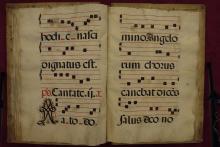 hodi e nasci
dignatus est.
ps Cantate. ij.
A a to do
mino Angelo
rum chorus
canebat dicēs
salus deo no